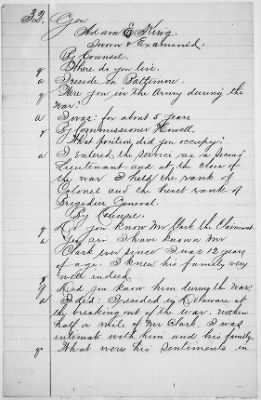 32. Gen
Adam E King.
Sworn & Examined.
By Counsel.
q Where do you live.
a I reside in Baltimore.
q Were you in the Army during the
war?
a I was: for about 5 years
q By Commissioner Howell.
What position did you occupy?
a I entered the service as a Second
Lieutenant and at the close of
the war I held the rank of
Colonel and the brevet rank of
Brigadier General.
By Counsel.
q Do you know Mr Clark the Claimant
a Yes sir I have known Mr
Clark ever since I was 12 years
of age. I knew his family very
well indeed.
q Did you know him during the war?
a I did: I resided in Delaware at
the breaking out of the war. within
half a mile of Mr Clark. I was
intimate with him and his family.
q What were his sentiments in